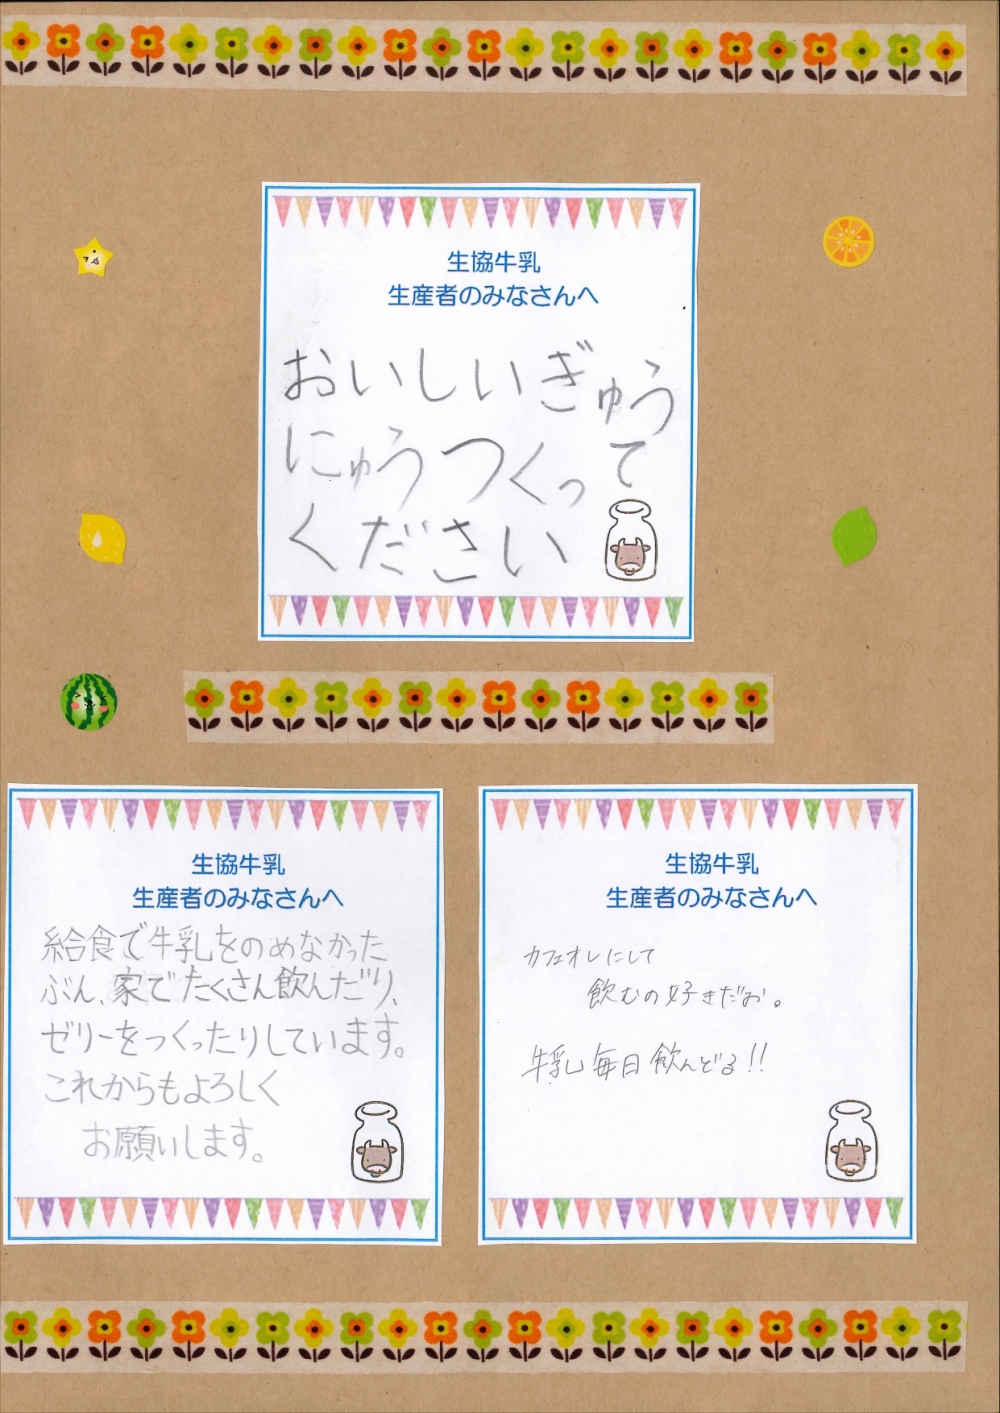 生協牛乳
生産者のみなさんへ
おいしいぎゅう
にゅうつくって
ください
生協牛乳
生産者のみなさんへ
給食で牛乳をのめなかった
ぶん、家でたくさん飲んだり、
ゼリーをつくったりしています。
これからもよろしく
お願いします。
生協牛乳
生産者のみなさんへ
カフェオレにして
飲むの好きだお。
牛乳毎日飲んどる!!